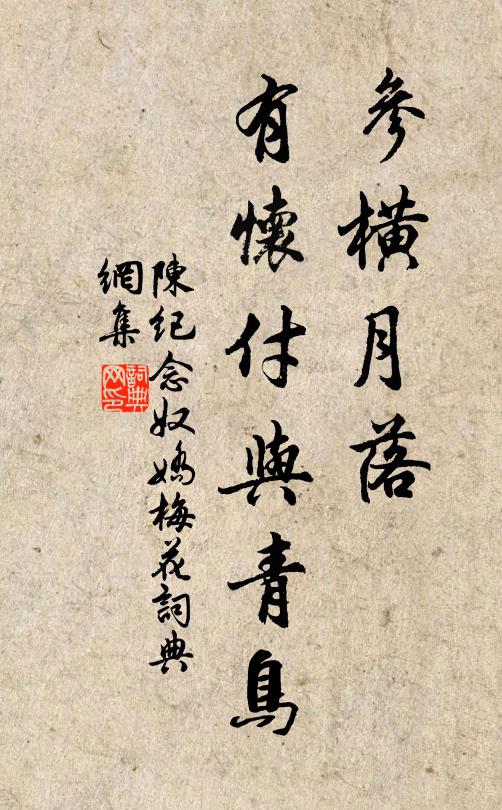 參橫月落
有懷付與青鳥
陳紀念奴嬌梅花詞典
網集
詞典
网印